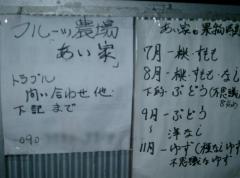 フルーツ農場
「あい家」
トラブル
問い合わせ他
下記まで
090
あい家の果物
7月－桃・すもも
8月－桃・すもも・なし
下旬－ぶどう
9月－ぶどう
～ 洋なし
11月－ゆず（種なしゆず
不思議なゆず